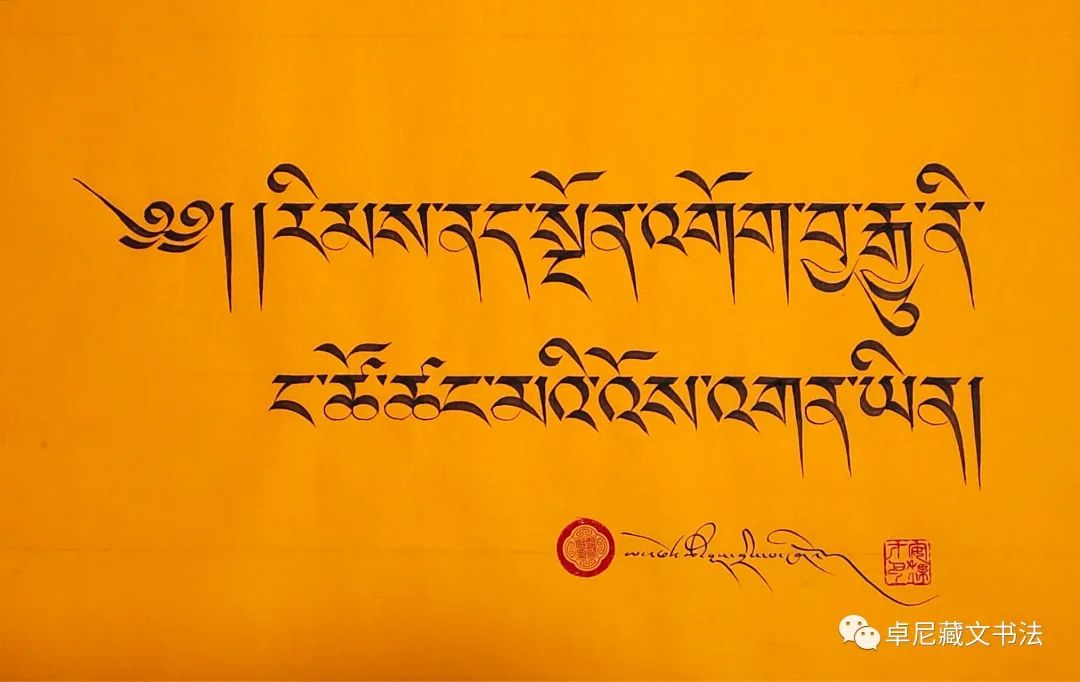 ༄༅། །རིམས་ནད་སྔོན་འགོག་བྱ་རྒྱུ་ནི་
ང་ཚོ་ཚང་མའི་འོས་འགན་ཡིན།
卓尼藏文书法